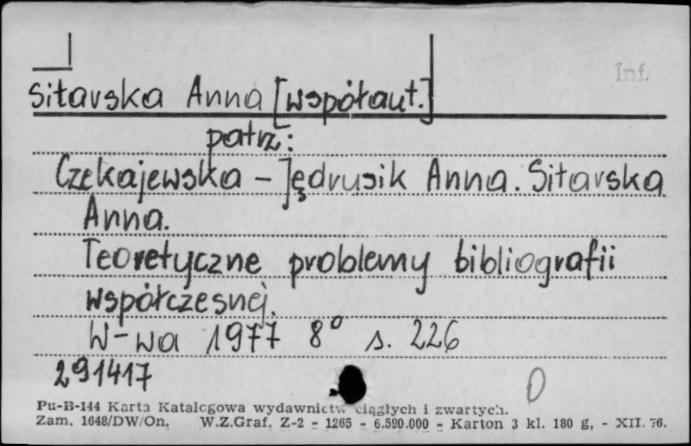 Inf.
Sitarska Anna [współaut.]
patrz:
Czekajewska - Jędrusik Anna. Sitarska
Anna.
Teoretyczne problemy bibliografii
współczesnej.
W-wa 1977 8° s. 226
291417
0
Pu-B-144 Karta Katalogowa wydawnictw ciągłych i zwartych.
Zam. 1648/DW/On. W.Z.Graf. Z-2 - 1265 - 6.590.000 - Karton 3 kl. 180 g, - XII. 76.